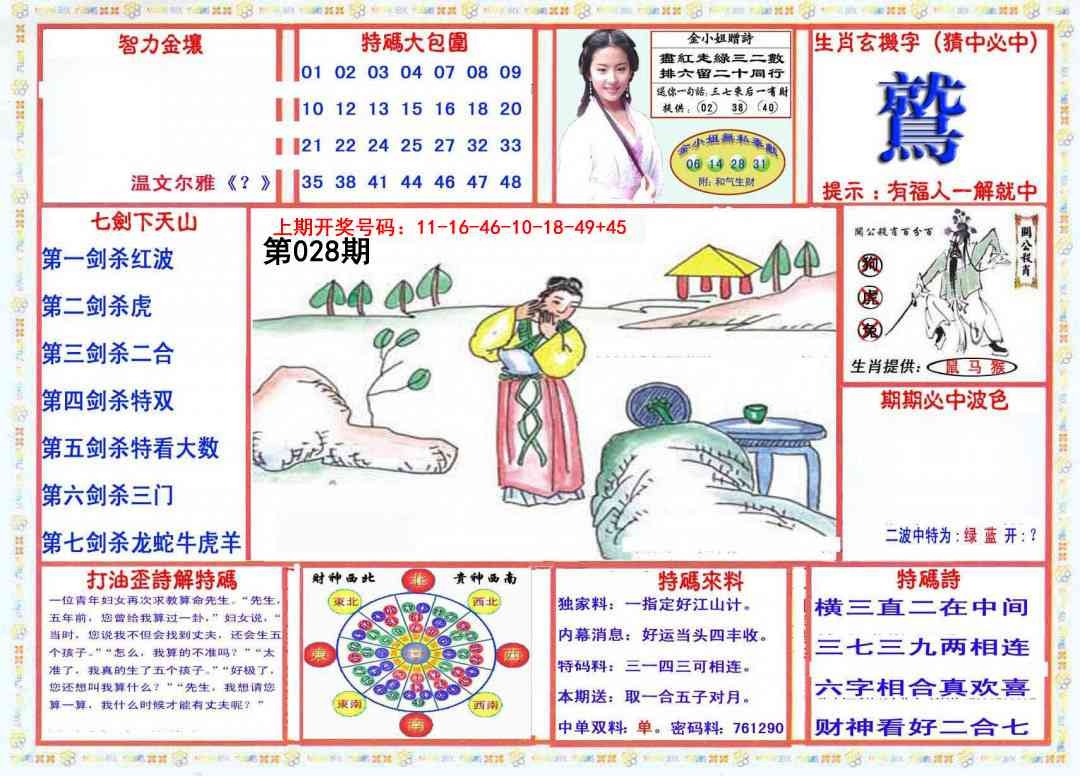 智力金壤
温文尔雅《？》
特碼大包圍
01 02 03 04 07 08 09
10 12 13 15 16 18 20
21 22 24 25 27 32 33
35 38 41 44 46 47 48
金小姐贈詩
盡紅走綠三二數
排六留二十同行
送你一句話:三七来后一有財
提供:(02) (38) (40)
金小姐無私奉獻
06 14 28 31
附:和气生财
生肖玄撽字（猜中必中）
鷲
提示：有福人一解就中
七劍下天山
第一剑杀红波
第二剑杀虎
第三剑杀二合
第四剑杀特双
第五剑杀特看大数
第六剑杀三门
第七剑杀龙蛇牛虎羊
上期开奖号码：11-16-46-10-18-49+45
第028期
關公殺肖百分百
關公殺肖
狗
虎
兔
生肖提供：鼠 马 猴
期期必中波色
二波中特为：绿 蓝 开：？
打油歪詩解特碼
一位青年妇女再次求教算命先生。“先生，
五年前，您曾给我算过一卦，”妇女说，“
当时，您说我不但会找到丈夫，还会生五
个孩子。”“怎么，我算的不准吗？”“太
准了，我真的生了五个孩子。”“好极了，
您还想叫我算什么？”“先生，我想请您
算一算，我什么时候才能有丈夫呢？”
財神西北
貴神西南
北
東北
西北
東
西
東南
西南
南
特碼來料
独家料：一指定好江山计。
内幕消息：好运当头四丰收。
特码料：三一四三可相连。
本期送：取一合五子对月。
中单双料：单。密码料：761290
特碼詩
横三直二在中间
三七三九两相连
六字相合真欢喜
财神看好二合七